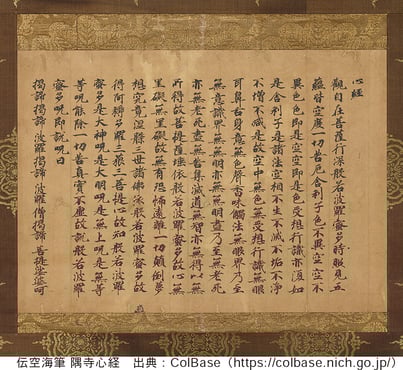 心経
觀自在菩薩行深般若波羅蜜多時照見五
蘊皆空度一切苦厄舍利子色不異空空不
異色色即是空空即是色受想行識亦復如
是舍利子是諸法空相不生不滅不垢不淨
不增不減是故空中無色無受想行識無眼
耳鼻舌身意無色聲香味觸法無眼界乃至
無意識界無無明亦無無明盡乃至無老死
亦無老死盡無苦集滅道無智亦無得以無
所得故菩提薩埵依般若波羅蜜多故心無
罣礙無罣礙故無有恐怖遠離一切顛倒夢
想究竟涅槃三世諸佛依般若波羅蜜多故
得阿耨多羅三藐三菩提故知般若波羅
蜜多是大神呪是大明呪是無上呪是無等
等呪能除一切苦真實不虛故說般若波羅
蜜多呪即說呪曰
揭諦揭諦 波羅揭諦 波羅僧揭諦 菩提娑婆呵
伝空海筆 隅寺心経　出典：ColBase（https://colbase.nich.go.jp/）